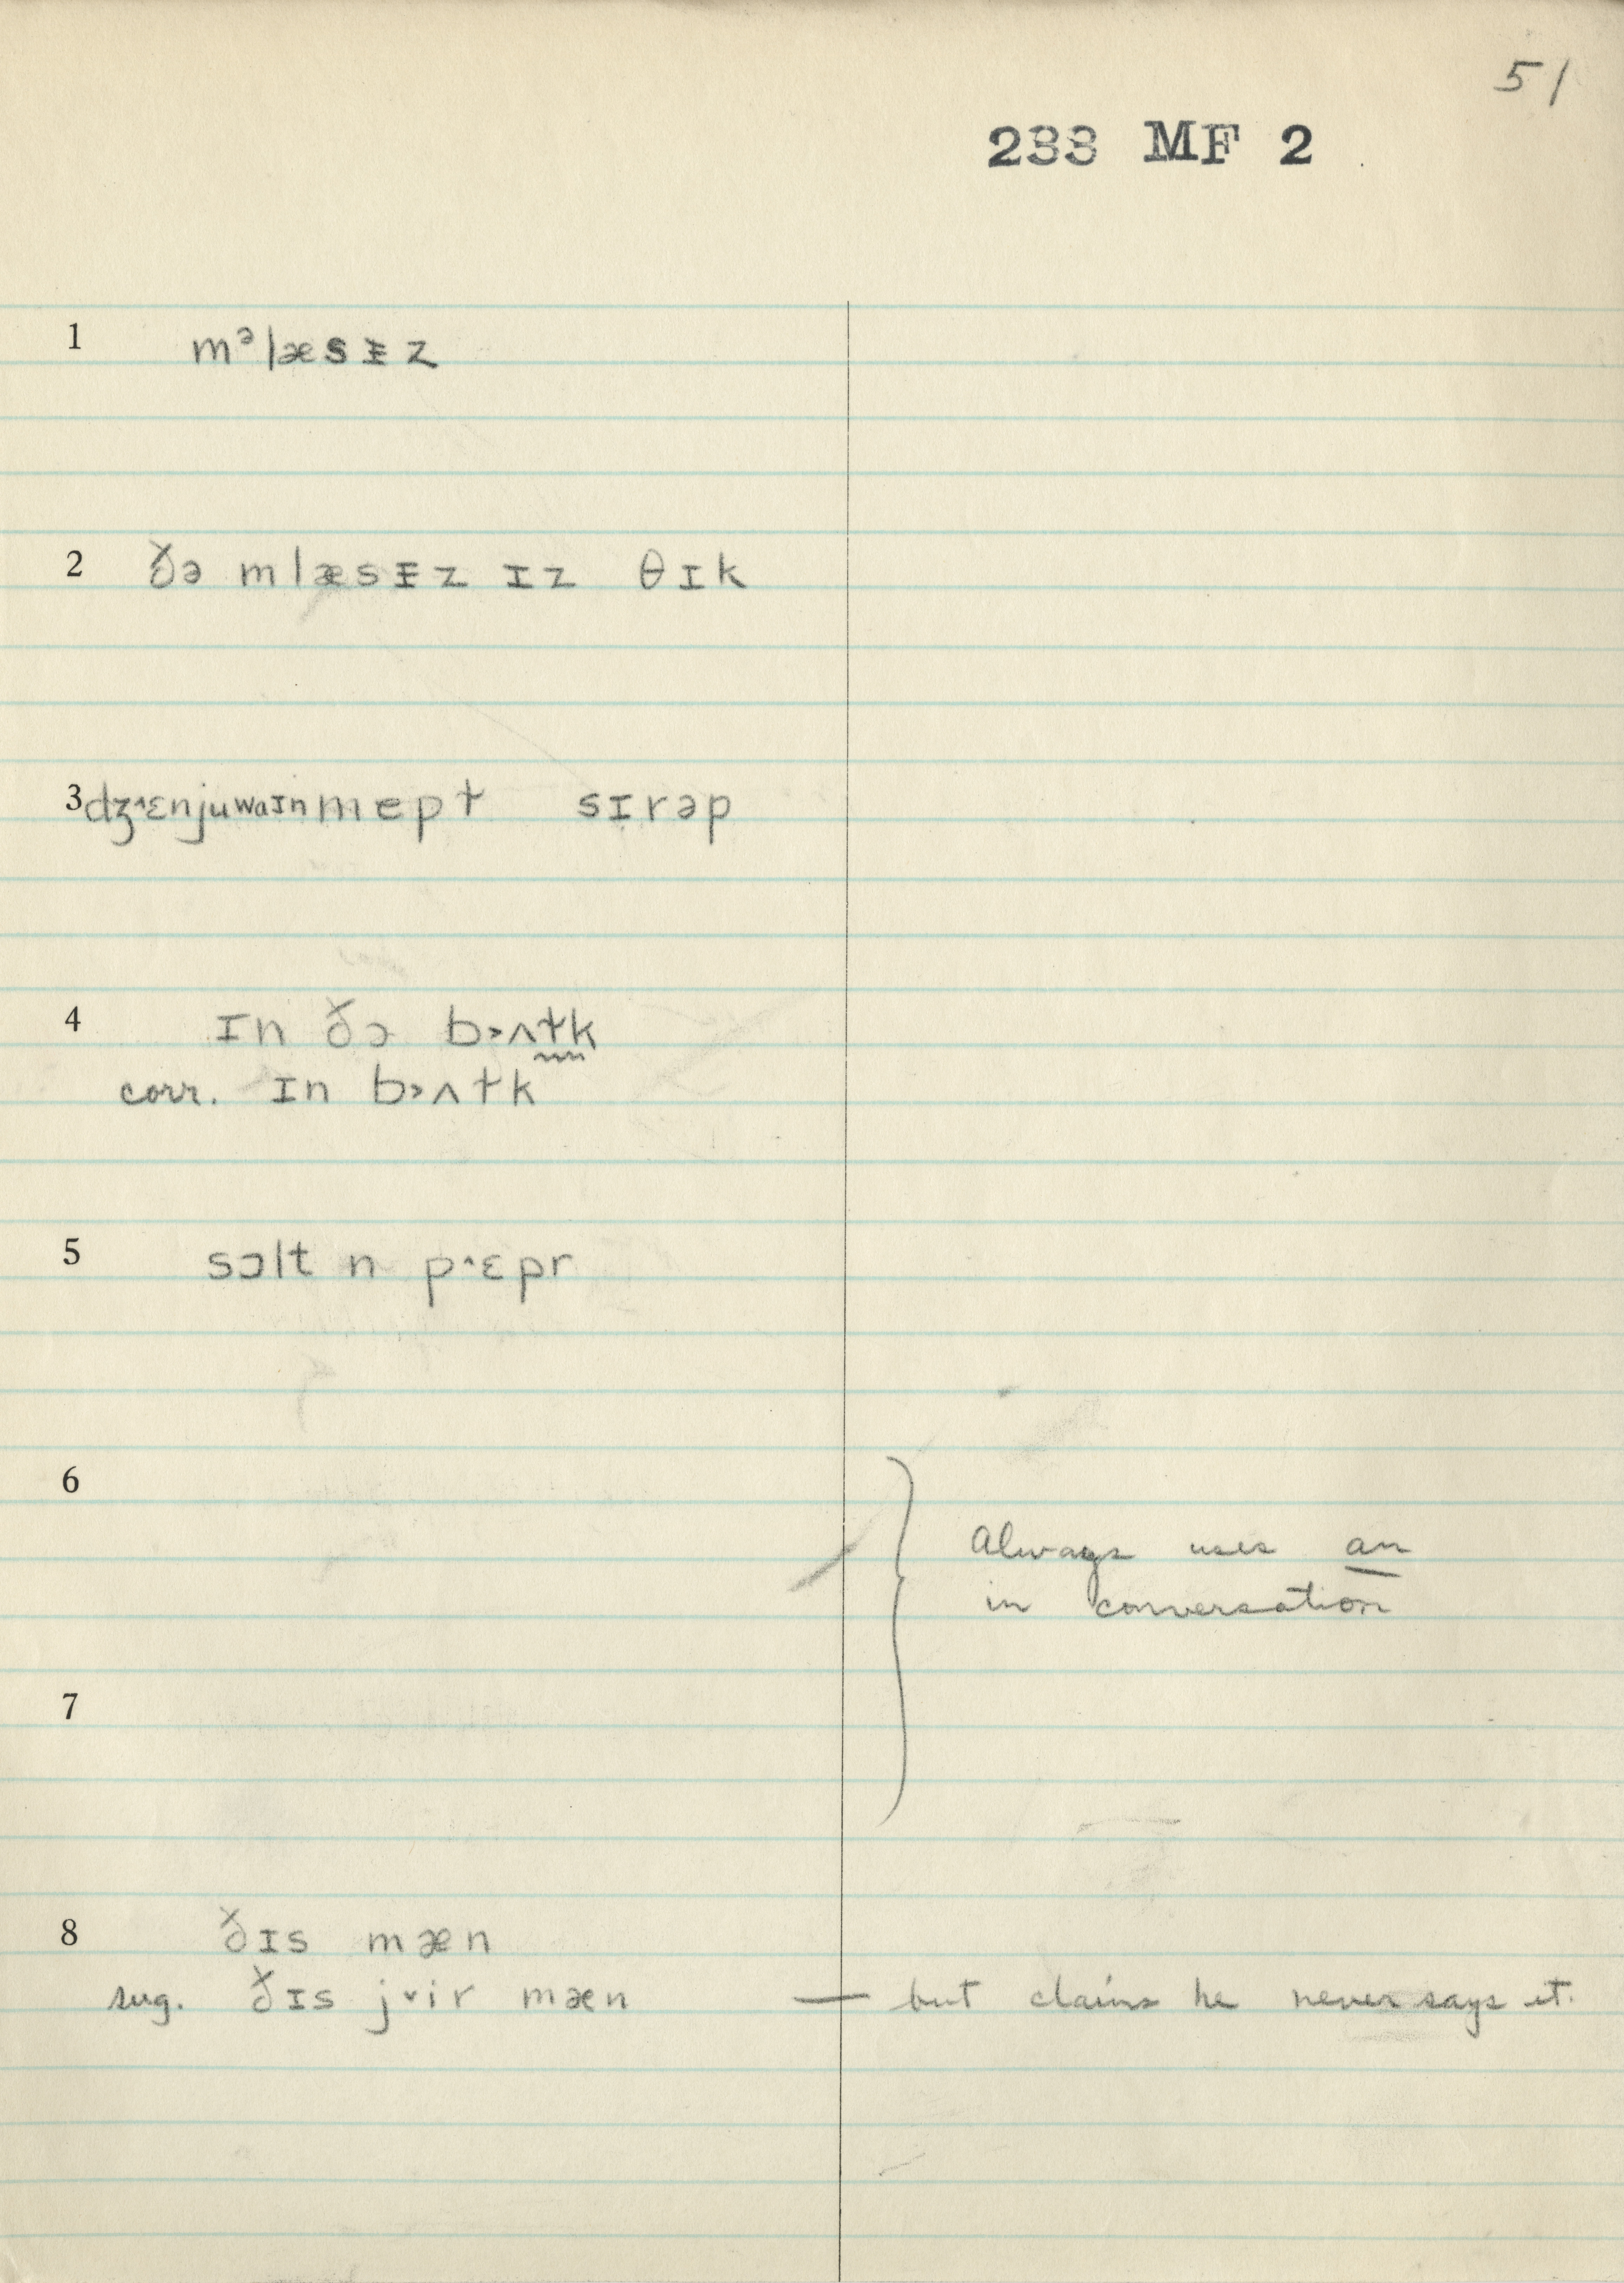 51
233 MF 2
1 mᵊlæsᵻz
2 ðə mlæsᵻz ɪz θɪk
3 dʒ^ɛnjuwaɪnmepɫ sɪrəp
4 ɪn ðə b>ʌɫk
corr. ɪn b>ʌɫk
5 sɔlt n p^ɛpr
6
Always uses an
in conversation
7
8 ðɪs mæn
sug. ðɪs j˅ir mæn — but claims he never says it.